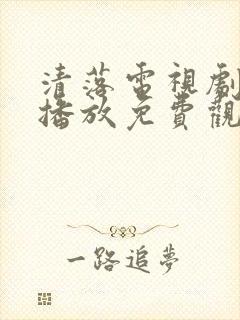 清落電視劇
播放免費觀
一路追夢